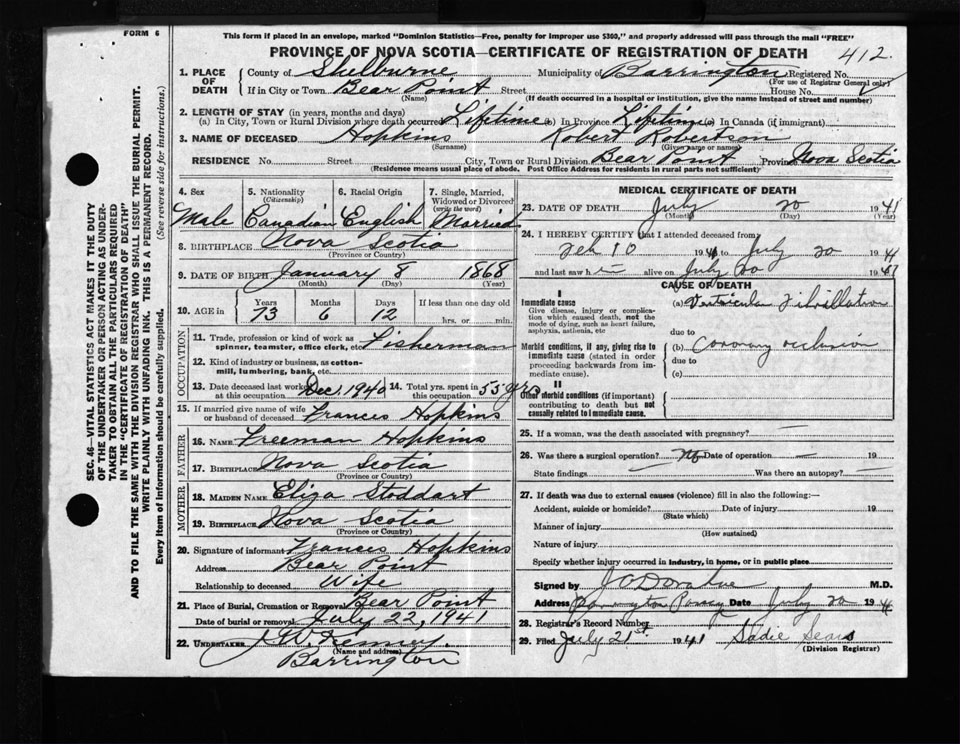 FORM 6
This form if placed in an envelope, marked "Dominion Statistics—Free, penalty for improper use $300," and properly addressed will pass through the mail "FREE"
PROVINCE OF NOVA SCOTIA—CERTIFICATE OF REGISTRATION OF DEATH
412
1. PLACE OF DEATH
County of Shelburne Municipality of Barrington Registered No.
(For use of Registrar General only)
If in City or Town Bear Point Street House No.
(Name) (If death occurred in a hospital or institution, give the name instead of street and number)
2. LENGTH OF STAY (in years, months and days)
(a) In City, Town or Rural Division where death occurred Lifetime (b) In Province Lifetime (c) In Canada (if immigrant)
3. NAME OF DECEASED Hopkins Robert Robertson
(Surname) (Given name or names)
RESIDENCE No. Street City, Town or Rural Division Bear Point Province Nova Scotia
(Residence means usual place of abode. Post Office Address for residents in rural parts not sufficient)
4. Sex Male
5. Nationality (Citizenship) Canadian
6. Racial Origin English
7. Single, Married, Widowed or Divorced (write the word) Married
8. BIRTHPLACE Nova Scotia
(Province or Country)
9. DATE OF BIRTH January 8 1868
(Month) (Day) (Year)
10. AGE in Years 73 Months 6 Days 12 If less than one day old hrs. or min.
OCCUPATION
11. Trade, profession or kind of work as spinner, teamster, office clerk, etc. Fisherman
12. Kind of industry or business, as cotton-mill, lumbering, bank, etc.
13. Date deceased last worked at this occupation Dec 1940 14. Total yrs. spent in this occupation 55 yrs
15. If married give name of wife or husband of deceased Frances Hopkins
FATHER
16. NAME Freeman Hopkins
17. BIRTHPLACE Nova Scotia
(Province or Country)
MOTHER
18. MAIDEN NAME Eliza Stoddart
19. BIRTHPLACE Nova Scotia
(Province or Country)
20. Signature of informant Frances Hopkins
Address Bear Point
Relationship to deceased Wife
21. Place of Burial, Cremation or Removal Bear Point
Date of burial or removal July 22, 1941
22. UNDERTAKER
(Name and address)
Barrington
MEDICAL CERTIFICATE OF DEATH
23. DATE OF DEATH July 20 1941
(Month) (Day) (Year)
24. I HEREBY CERTIFY that I attended deceased from
Feb 10 1941 to July 20 1941
and last saw h alive on July 20 1941
CAUSE OF DEATH
I
Immediate cause
Give disease, injury or complication which caused death, not the mode of dying, such as heart failure, asphyxia, asthenia, etc
(a) Ventricular Fibrillation
due to
Morbid conditions, if any, giving rise to immediate cause (stated in order proceeding backwards from immediate cause).
(b) Coronary occlusion
due to
(c)
II
Other morbid conditions (if important) contributing to death but not causally related to immediate cause.
25. If a woman, was the death associated with pregnancy? —
26. Was there a surgical operation? No Date of operation —
State findings — Was there an autopsy? —
27. If death was due to external causes (violence) fill in also the following:—
Accident, suicide or homicide? Date of injury 19
(State which)
Manner of injury
(How sustained)
Nature of injury
Specify whether injury occurred in industry, in home, or in public place
Signed by M.D.
Address Date July 20 1941
28. Registrar's Record Number
29. Filed July 21st 1941 Sadie Sears
(Division Registrar)
SEC. 46—VITAL STATISTICS ACT MAKES IT THE DUTY
OF THE UNDERTAKER OR PERSON ACTING AS UNDERTAKER TO OBTAIN ALL THE PARTICULARS REQUIRED
IN THE "CERTIFICATE OF REGISTRATION OF DEATH"
AND TO FILE THE SAME WITH THE DIVISION REGISTRAR WHO SHALL ISSUE THE BURIAL PERMIT.
WRITE PLAINLY WITH UNFADING INK. THIS IS A PERMANENT RECORD.
Every item of information should be carefully supplied. (See reverse side for instructions.)